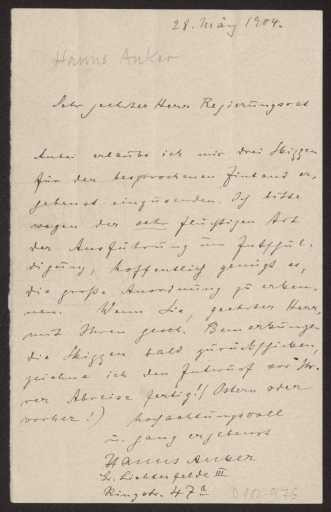 28. März 1904.
Hanns Anker
Sehr geehrter Herr Regierungsrat
Anbei erlaube ich mir drei Skizzen
für den besprochenen Einband er,
gebenst einzusenden. Ich bitte
wegen der sehr flüchtigen Art
der Ausführung um Entschul,
digung, hoffentlich genügt es,
die große Anordnung zu erken,
nen. Wenn Sie, geehrter Herr,
mit Ihren gesch. Bemerkungen
die Skizzen bald zurückschicken,
zeichne ich den Entwurf vor Ih,
rer Abreise fertig! (Ostern oder
vorher!) Hochachtungsvoll
u. ganz ergebenst
Hanns Anker
Gr. Lichterfelde III
Ringstr. 47a